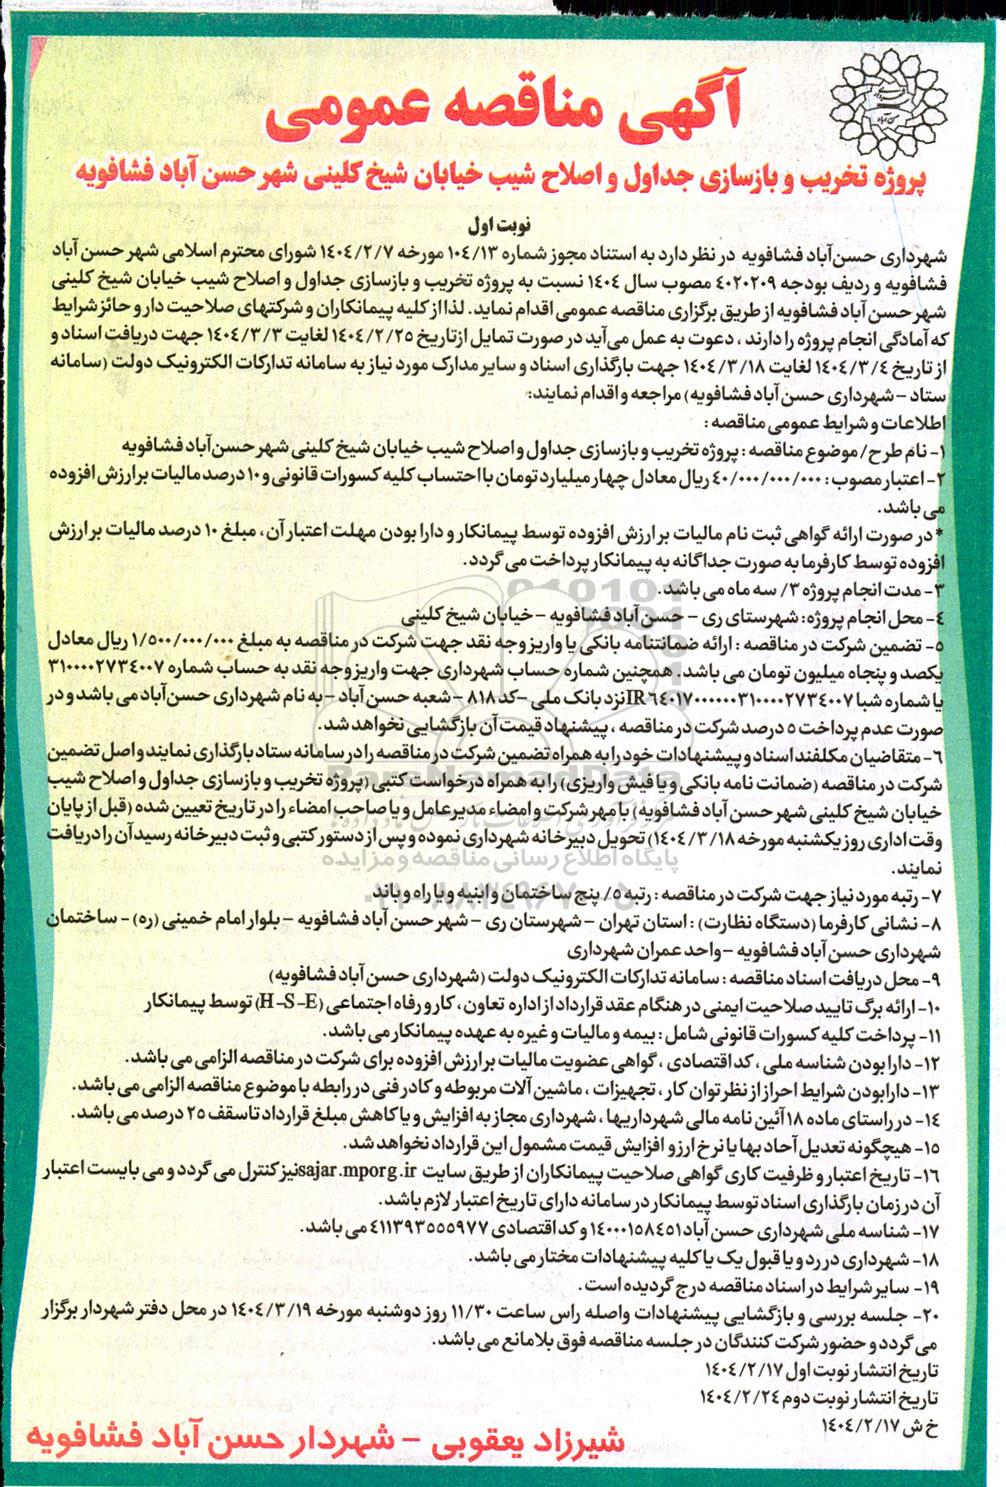 آگهی مناقصه عمومی
پروژه تخریب و بازسازی جداول و اصلاح شیب خیابان شیخ کلینی شهر حسن آباد فشافویه
نوبت اول
شهرداری حسن‌آباد فشافویه در نظر دارد به استناد مجوز شماره ۱۰۴/۱۳ مورخه ۱۴۰۴/۲/۷ شورای محترم اسلامی شهر حسن آباد
فشافویه و ردیف بودجه ۴۰۲۰۲۰۹ مصوب سال ۱۴۰۴ نسبت به پروژه تخریب و بازسازی جداول و اصلاح شیب خیابان شیخ کلینی
شهر حسن آباد فشافویه از طریق برگزاری مناقصه عمومی اقدام نماید. لذا از کلیه پیمانکاران و شرکتهای صلاحیت دار و حائز شرایط
که آمادگی انجام پروژه را دارند ، دعوت به عمل می‌آید در صورت تمایل از تاریخ ۱۴۰۴/۲/۲۵ لغایت ۱۴۰۴/۳/۳ جهت دریافت اسناد و
از تاریخ ۱۴۰۴/۳/۴ لغایت ۱۴۰۴/۳/۱۸ جهت بارگذاری اسناد و سایر مدارک مورد نیاز به سامانه تدارکات الکترونیک دولت (سامانه
ستاد – شهرداری حسن آباد فشافویه) مراجعه و اقدام نمایند:
اطلاعات و شرایط عمومی مناقصه :
۱- نام طرح/ موضوع مناقصه : پروژه تخریب و بازسازی جداول و اصلاح شیب خیابان شیخ کلینی شهر حسن‌آباد فشافویه
۲- اعتبار مصوب : ۴۰/۰۰۰/۰۰۰/۰۰۰ ریال معادل چهار میلیارد تومان با احتساب کلیه کسورات قانونی و ۱۰ درصد مالیات بر ارزش افزوده
می باشد.
* در صورت ارائه گواهی ثبت نام مالیات بر ارزش افزوده توسط پیمانکار و دارا بودن مهلت اعتبار آن ، مبلغ ۱۰ درصد مالیات بر ارزش
افزوده توسط کارفرما به صورت جداگانه به پیمانکار پرداخت می گردد.
۳- مدت انجام پروژه ۳/ سه ماه می باشد.
۴- محل انجام پروژه: شهرستای ری – حسن آباد فشافویه – خیابان شیخ کلینی
۵- تضمین شرکت در مناقصه : ارائه ضمانتنامه بانکی یا واریز وجه نقد جهت شرکت در مناقصه به مبلغ ۱/۵۰۰/۰۰۰/۰۰۰ ریال معادل
یکصد و پنجاه میلیون تومان می باشد. همچنین شماره حساب شهرداری جهت واریز وجه نقد به حساب شماره ۳۱۰۰۰۰۲۷۳۴۰۰۷
یا شماره شبا IR ۶۴۰۱۷۰۰۰۰۰۰۳۱۰۰۰۰۲۷۳۴۰۰۷ نزد بانک ملی – کد ۸۱۸ – شعبه حسن آباد – به نام شهرداری حسن‌آباد می باشد و در
صورت عدم پرداخت ۵ درصد شرکت در مناقصه ، پیشنهاد قیمت آن بازگشایی نخواهد شد.
۶- متقاضیان مکلفند اسناد و پیشنهادات خود را به همراه تضمین شرکت در مناقصه را در سامانه ستاد بارگذاری نمایند و اصل تضمین
شرکت در مناقصه (ضمانت نامه بانکی و یا فیش واریزی) را به همراه درخواست کتبی (پروژه تخریب و بازسازی جداول و اصلاح شیب
خیابان شیخ کلینی شهر حسن آباد فشافویه) با مهر شرکت و امضاء مدیرعامل و یا صاحب امضاء را در تاریخ تعیین شده (قبل از پایان
وقت اداری روز یکشنبه مورخه ۱۴۰۴/۳/۱۸) تحویل دبیرخانه شهرداری نموده و پس از دستور کتبی و ثبت دبیرخانه رسید آن را دریافت
نمایند.
۷- رتبه مورد نیاز جهت شرکت در مناقصه : رتبه ۵/ پنج ساختمان و ابنیه و یا راه و باند
۸- نشانی کارفرما (دستگاه نظارت) : استان تهران – شهرستان ری – شهر حسن آباد فشافویه – بلوار امام خمینی (ره) – ساختمان
شهرداری حسن آباد فشافویه – واحد عمران شهرداری
۹- محل دریافت اسناد مناقصه : سامانه تدارکات الکترونیک دولت (شهرداری حسن آباد فشافویه)
۱۰- ارائه برگ تایید صلاحیت ایمنی در هنگام عقد قرارداد از اداره تعاون ، کار و رفاه اجتماعی (H-S-E) توسط پیمانکار
۱۱- پرداخت کلیه کسورات قانونی شامل : بیمه و مالیات و غیره به عهده پیمانکار می باشد.
۱۲- دارا بودن شناسه ملی ، کد اقتصادی ، گواهی عضویت مالیات بر ارزش افزوده برای شرکت در مناقصه الزامی می باشد.
۱۳- دارابودن شرایط احراز از نظر توان کار ، تجهیزات ، ماشین آلات مربوطه و کادر فنی در رابطه با موضوع مناقصه الزامی می باشد.
۱۴- در راستای ماده ۱۸ آئین نامه مالی شهرداریها ، شهرداری مجاز به افزایش و یا کاهش مبلغ قرارداد تا سقف ۲۵ درصد می باشد.
۱۵- هیچگونه تعدیل آحاد بها یا نرخ ارز و افزایش قیمت مشمول این قرارداد نخواهد شد.
۱۶- تاریخ اعتبار و ظرفیت کاری گواهی صلاحیت پیمانکاران از طریق سایت sajar.mporg.ir نیز کنترل می گردد و می بایست اعتبار
آن در زمان بارگذاری اسناد توسط پیمانکار در سامانه دارای تاریخ اعتبار لازم باشد.
۱۷- شناسه ملی شهرداری حسن آباد ۱۴۰۰۰۱۵۸۴۵۱ و کد اقتصادی ۴۱۱۳۹۳۵۵۵۹۷۷ می باشد.
۱۸- شهرداری در رد و یا قبول یک یا کلیه پیشنهادات مختار می باشد.
۱۹- سایر شرایط در اسناد مناقصه درج گردیده است.
۲۰- جلسه بررسی و بازگشایی پیشنهادات واصله راس ساعت ۱۱/۳۰ روز دوشنبه مورخه ۱۴۰۴/۳/۱۹ در محل دفتر شهردار برگزار
می گردد و حضور شرکت کنندگان در جلسه مناقصه فوق بلامانع می باشد.
تاریخ انتشار نوبت اول ۱۴۰۴/۲/۱۷
تاریخ انتشار نوبت دوم ۱۴۰۴/۲/۲۴
خ ش ۱۴۰۴/۲/۱۷
شیرزاد یعقوبی – شهردار حسن آباد فشافویه
پایگاه اطلاع رسانی مناقصه و مزایده